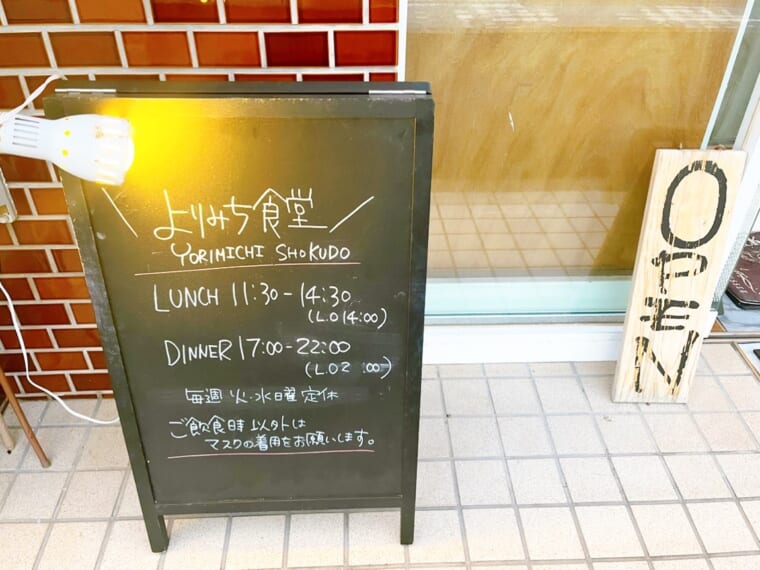 \ よりみち食堂 /
YORIMICHI SHOKUDO
LUNCH 11:30-14:30
(L.O 14:00)
DINNER 17:00-22:00
(L.O 2 :00)
毎週 火・水曜定休
ご飲食時以外は
マスクの着用をお願いします。
OPEN